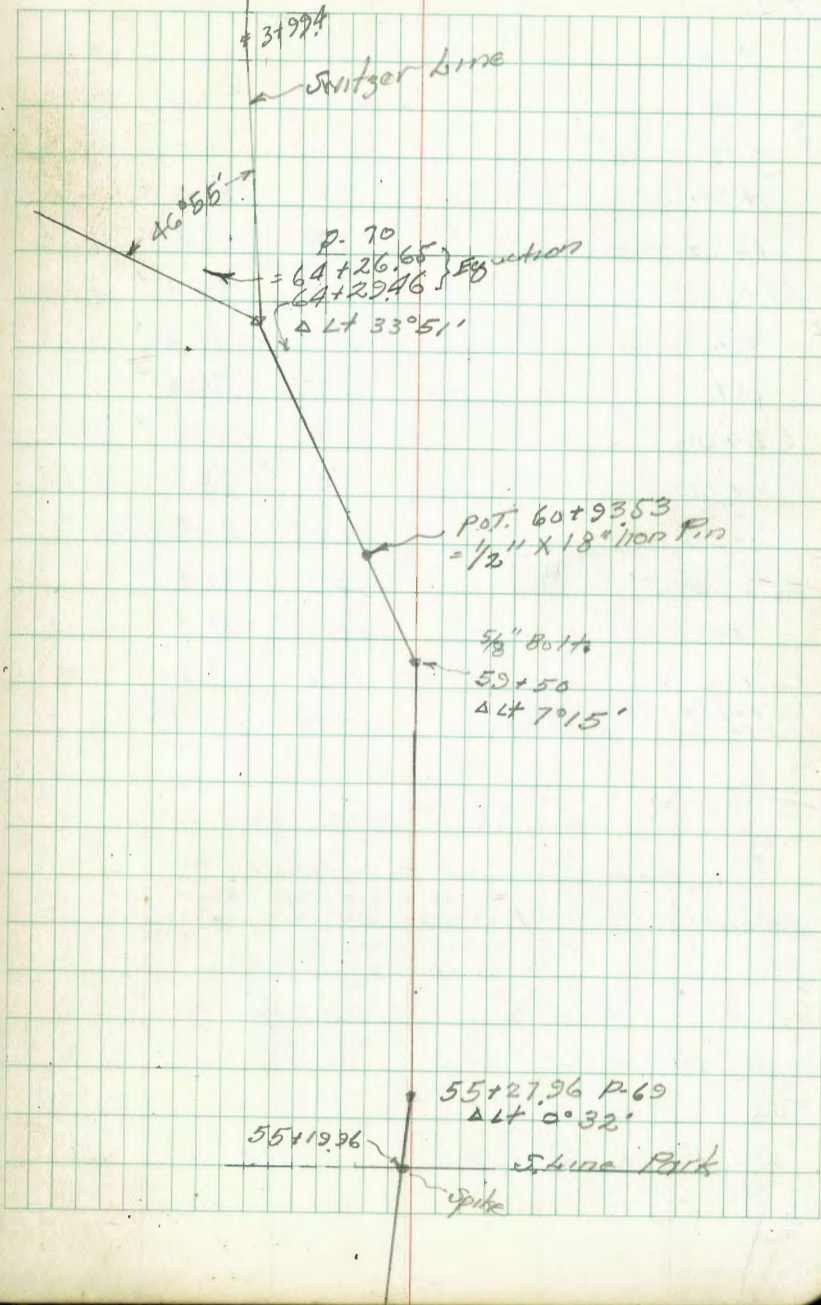 3+99.4
Switzer Line
46°55'
P-70
= 64+26.65 } Equation
64+29.46
Δ Lt 33°51'
P.O.T. 60+93.53
= 1/2" X 18" Iron Pin
5/8" Bolt.
59+50
Δ Lt 7°15'
55+27.96 P-69
Δ Lt 0°32'
55+19.96
S. Line Park
Spike